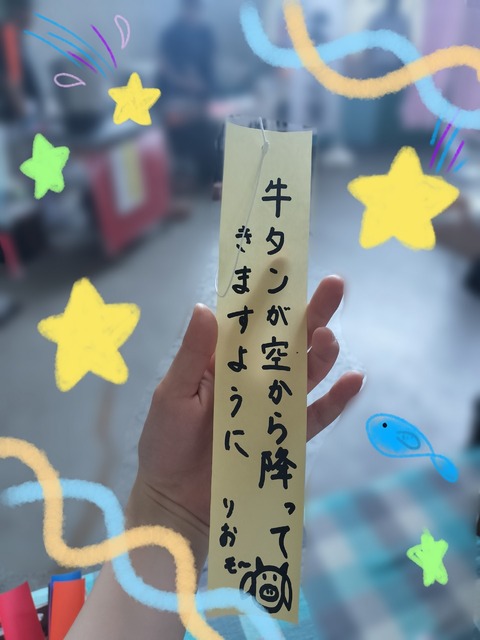 牛タンが空から降って
きますように
りお
モ〜